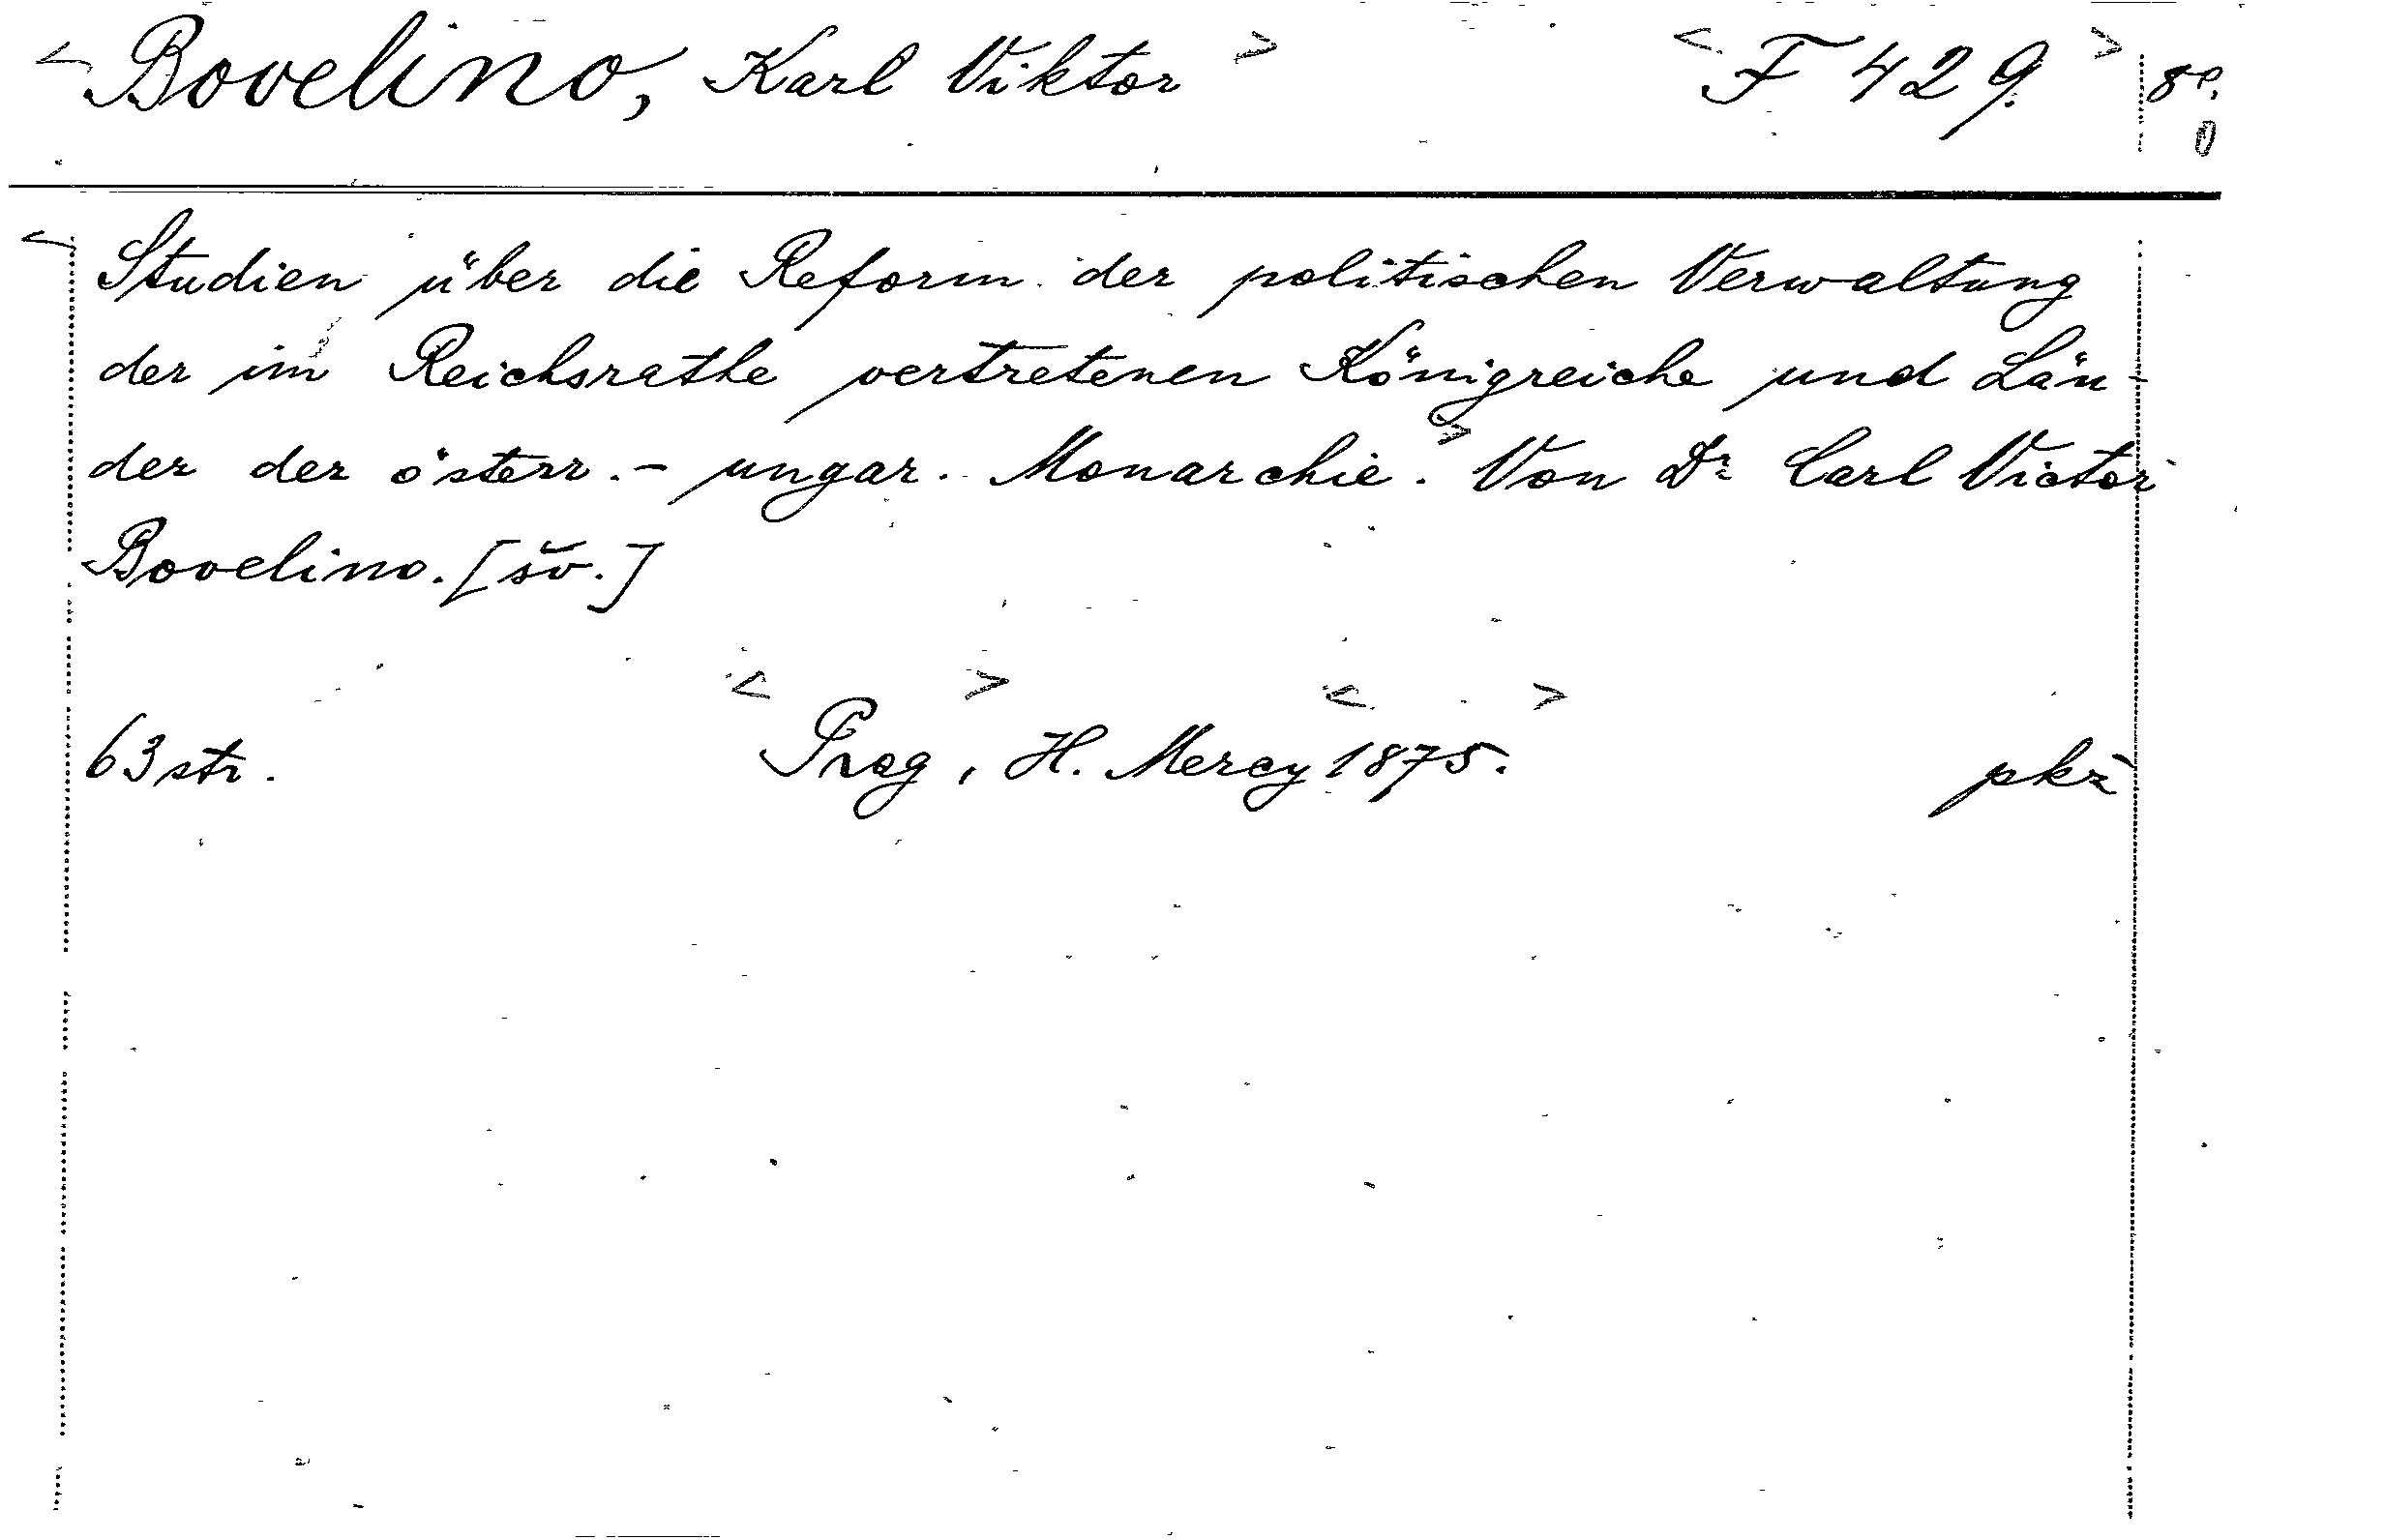 < Bovelino, Karl Viktor > < F 429. > 8°.
< Studien über die Reform der politischen Verwaltung
der im Reichsrathe vertretenen Königreiche und Län-
der der österr.- ungar. Monarchie. > Von Dr. Carl Victor
Bovelino. [šv.]
< > < >
63 str. Prag, H. Mercy 1875. pkž